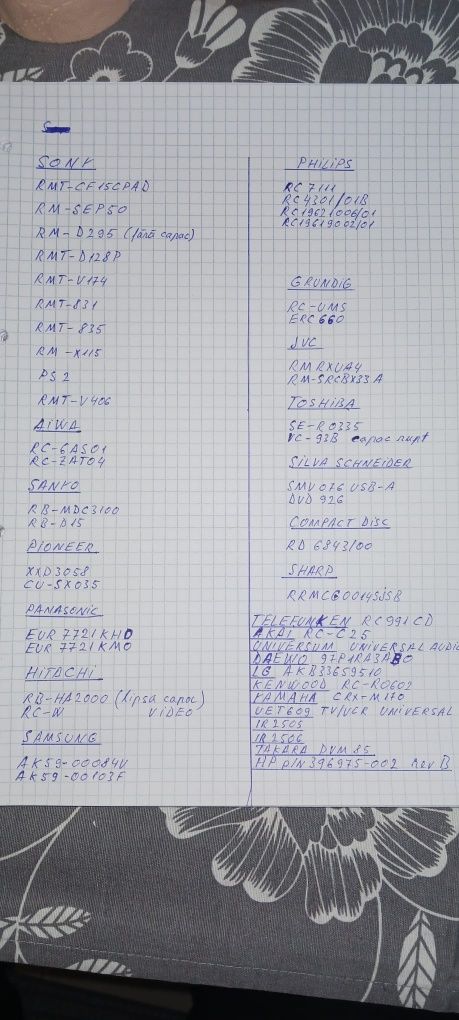 SONY
RMT-CF15CPAD
RM-SEP50
RM-D295 (fără capac)
RMT-D128P
RMT-V174
RMT-831
RMT-835
RM-X115
PS2
RMT-V406
AiWA
RC-6AS01
RC-7AT04
SANKO
RB-MDC3100
RB-D15
PiONEER
XXD3058
CU-SX035
PANASONiC
EUR 7721KH0
EUR 7721KM0
HiTACHi
RB-HA2000 (lipsă capac)
RC-W ViDEO
SAMSUNG
AK59-00084V
AK59-00103F
PHiLiPS
RC7111
RC4301/01B
RC19621006/01
RC19619002/01
GRUNDiG
RC-UMS
ERC660
JVC
RMRXUA4
RM-SRCBX33A
TOSHiBA
SE-R0335
VC-93B capac rupt
SiLVA SCHNEiDER
SMV076 USB-A
DVD 926
COMPACT DiSC
RD 6843/00
SHARP
RRMCG0014SJSB
TELEFUNKEN RC991CD
AKAi RC-C25
UNiVERSUM UNiVERSAL AUDiO
DAEWO 97P1RA3AB0
LG AKB33659510
KENWOOD RC-R0602
YAMAHA CRX-M170
UET609 TV/VCR UNiVERSAL
iR2505
iR2506
TAKARA DVM85
HP p/N 396975-002 Rev B